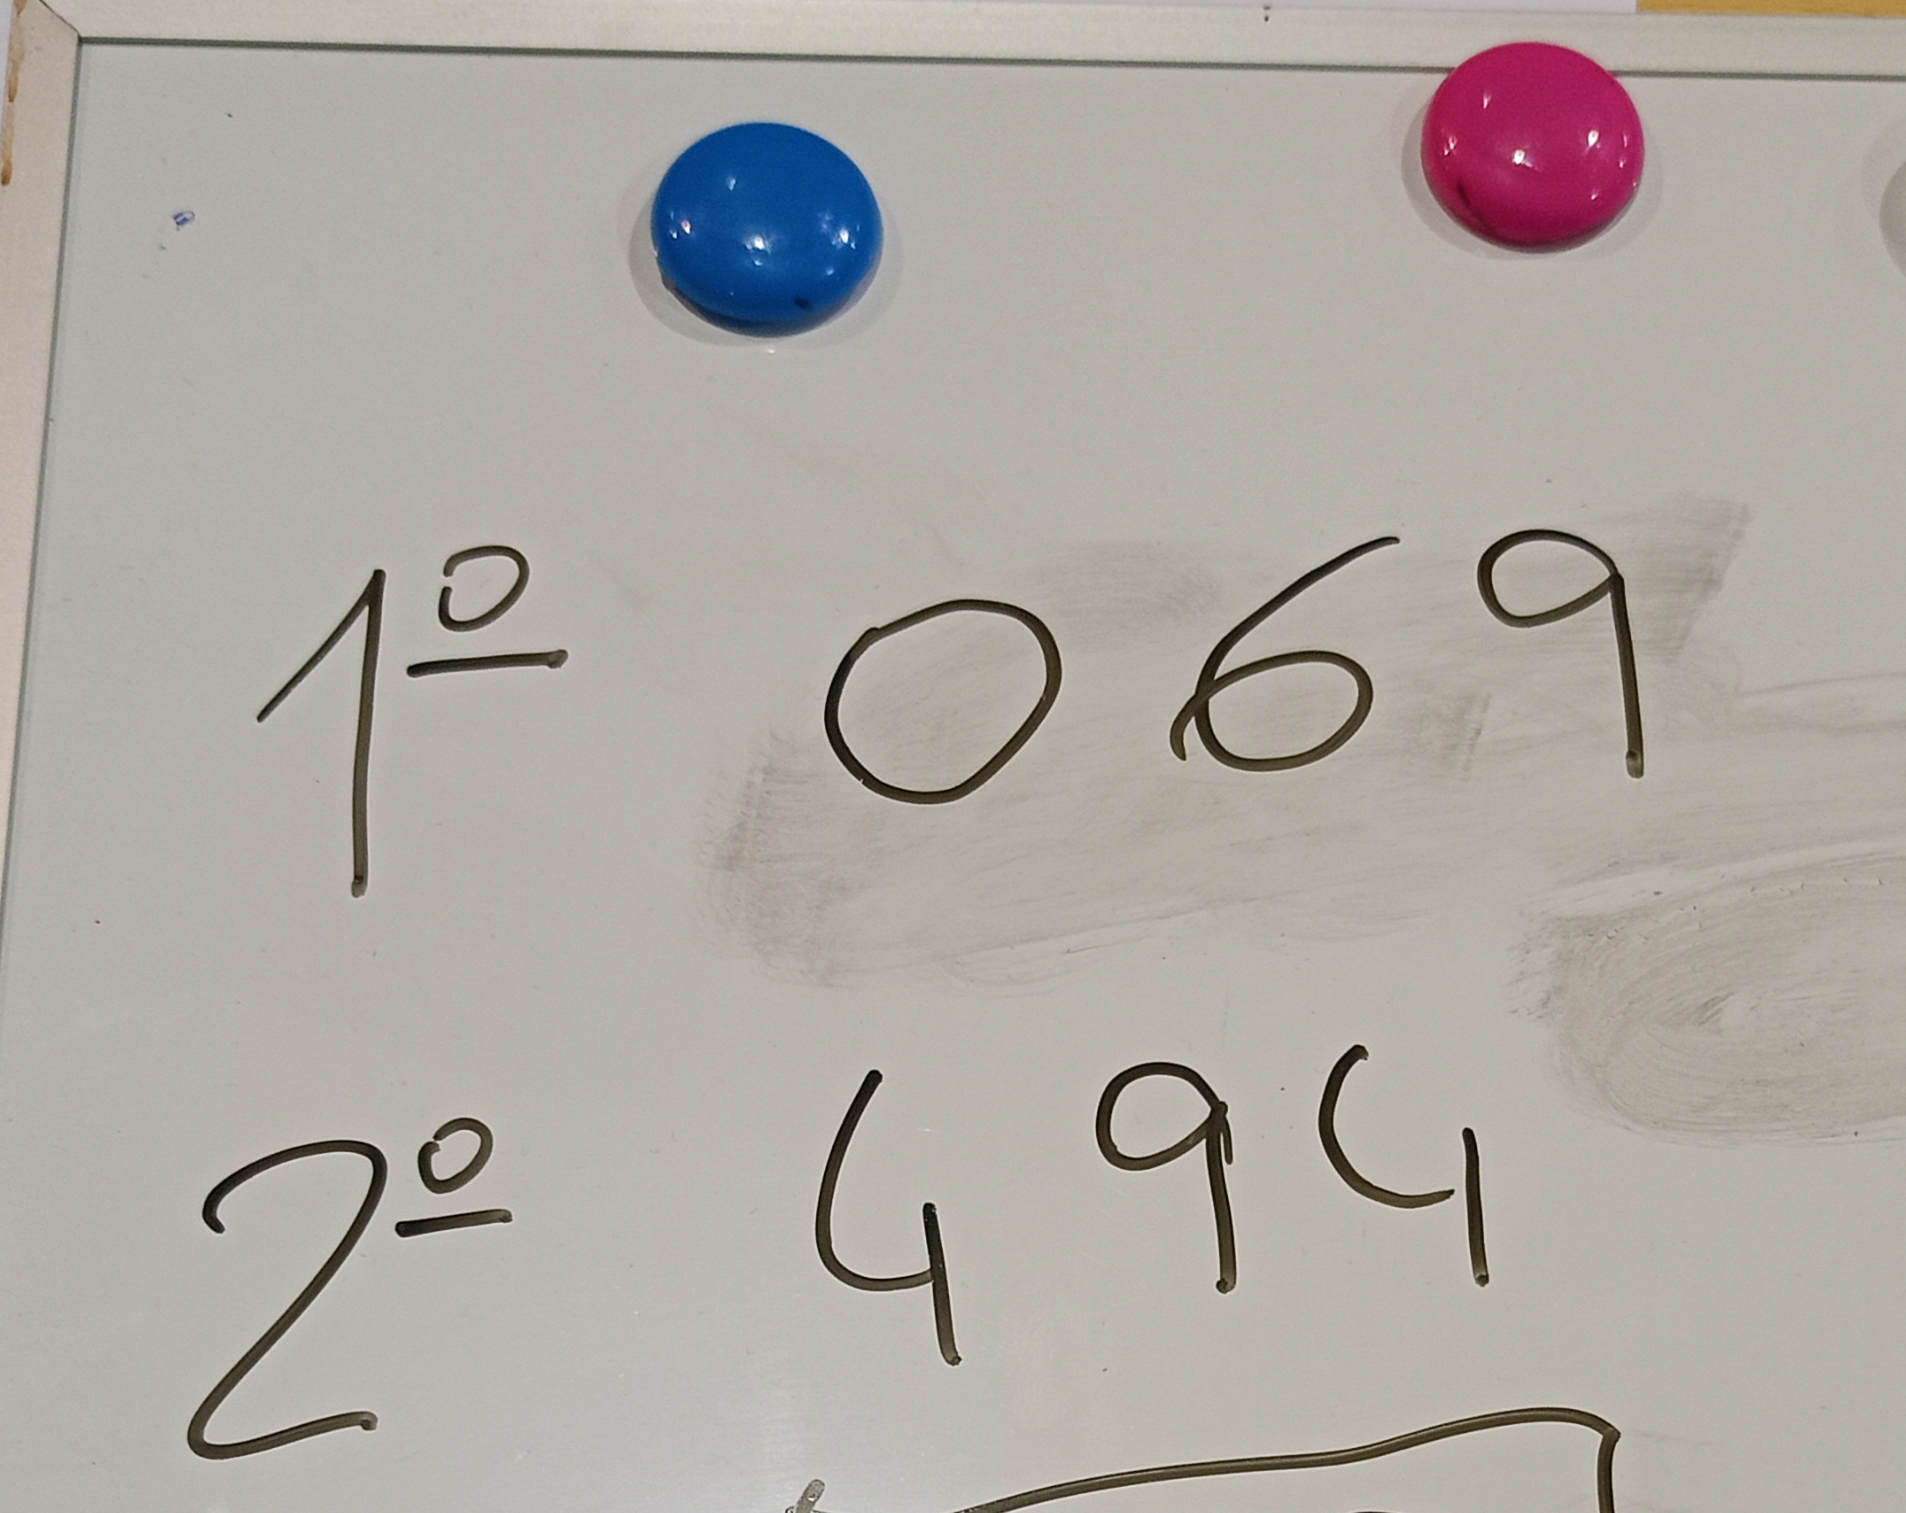 1º 069
2º 494